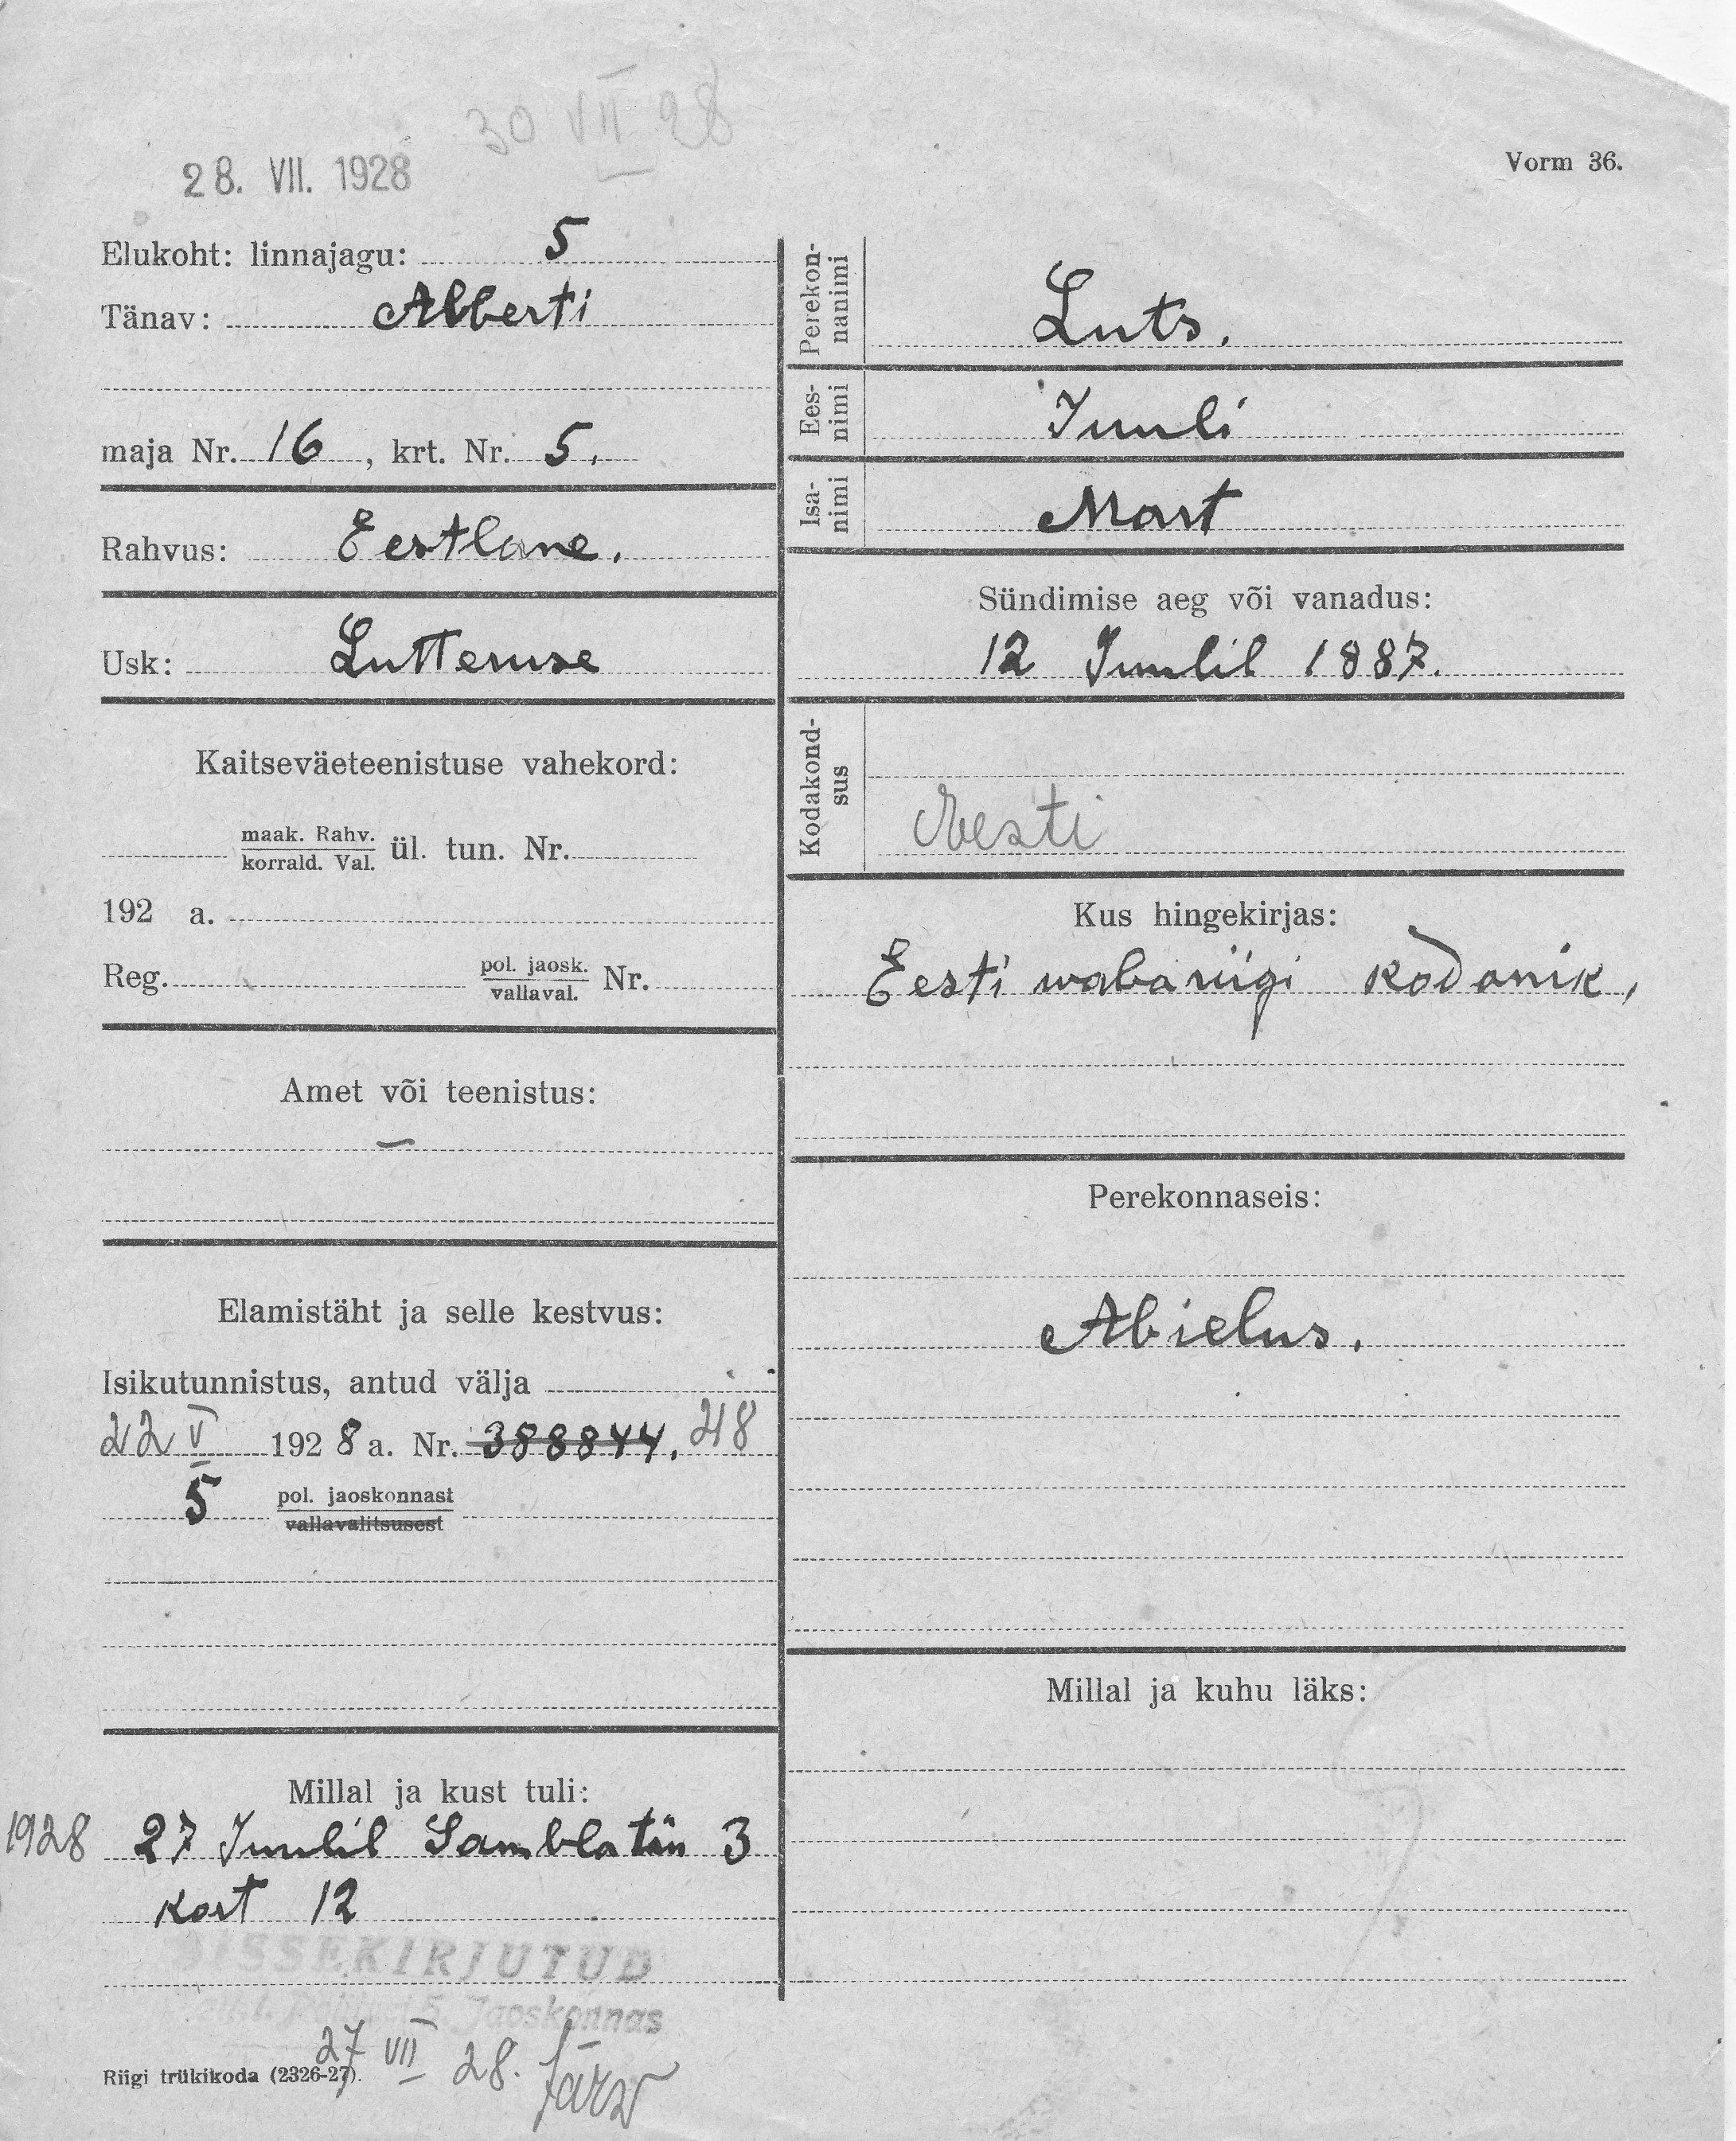 30 VII 28
28. VII. 1928
Vorm 36.
Elukoht: linnajagu: 5
Tänav: Alberti
maja Nr. 16, krt. Nr. 5.
Rahvus: Eestlane.
Usk: Lutteruse
Kaitseväeteenistuse vahekord:
maak. Rahv.
korrald. Val.
ül. tun. Nr.
192 a.
Reg. pol. jaosk. Nr.
vallaval.
Amet või teenistus:
—
Elamistäht ja selle kestvus:
Isikutunnistus, antud välja
22 V 1928 a. Nr. 388844. 248
5 pol. jaoskonnast
vallavalitsusest
Millal ja kust tuli:
1928 27 Juulil Sambla tän 3
kort 12
SISSEKIRJUTUD
5. Jaoskonnas
27 VII 28. Järw
Riigi trükikoda (2326-27).
Perekon-
nanimi
Luts.
Ees-
nimi
Juuli
Isa-
nimi
Mart
Sündimise aeg või vanadus:
12 Juulil 1887.
Kodakond-
sus
Eesti
Kus hingekirjas:
Eesti wabariigi kodanik,
Perekonnaseis:
Abielus.
Millal ja kuhu läks: